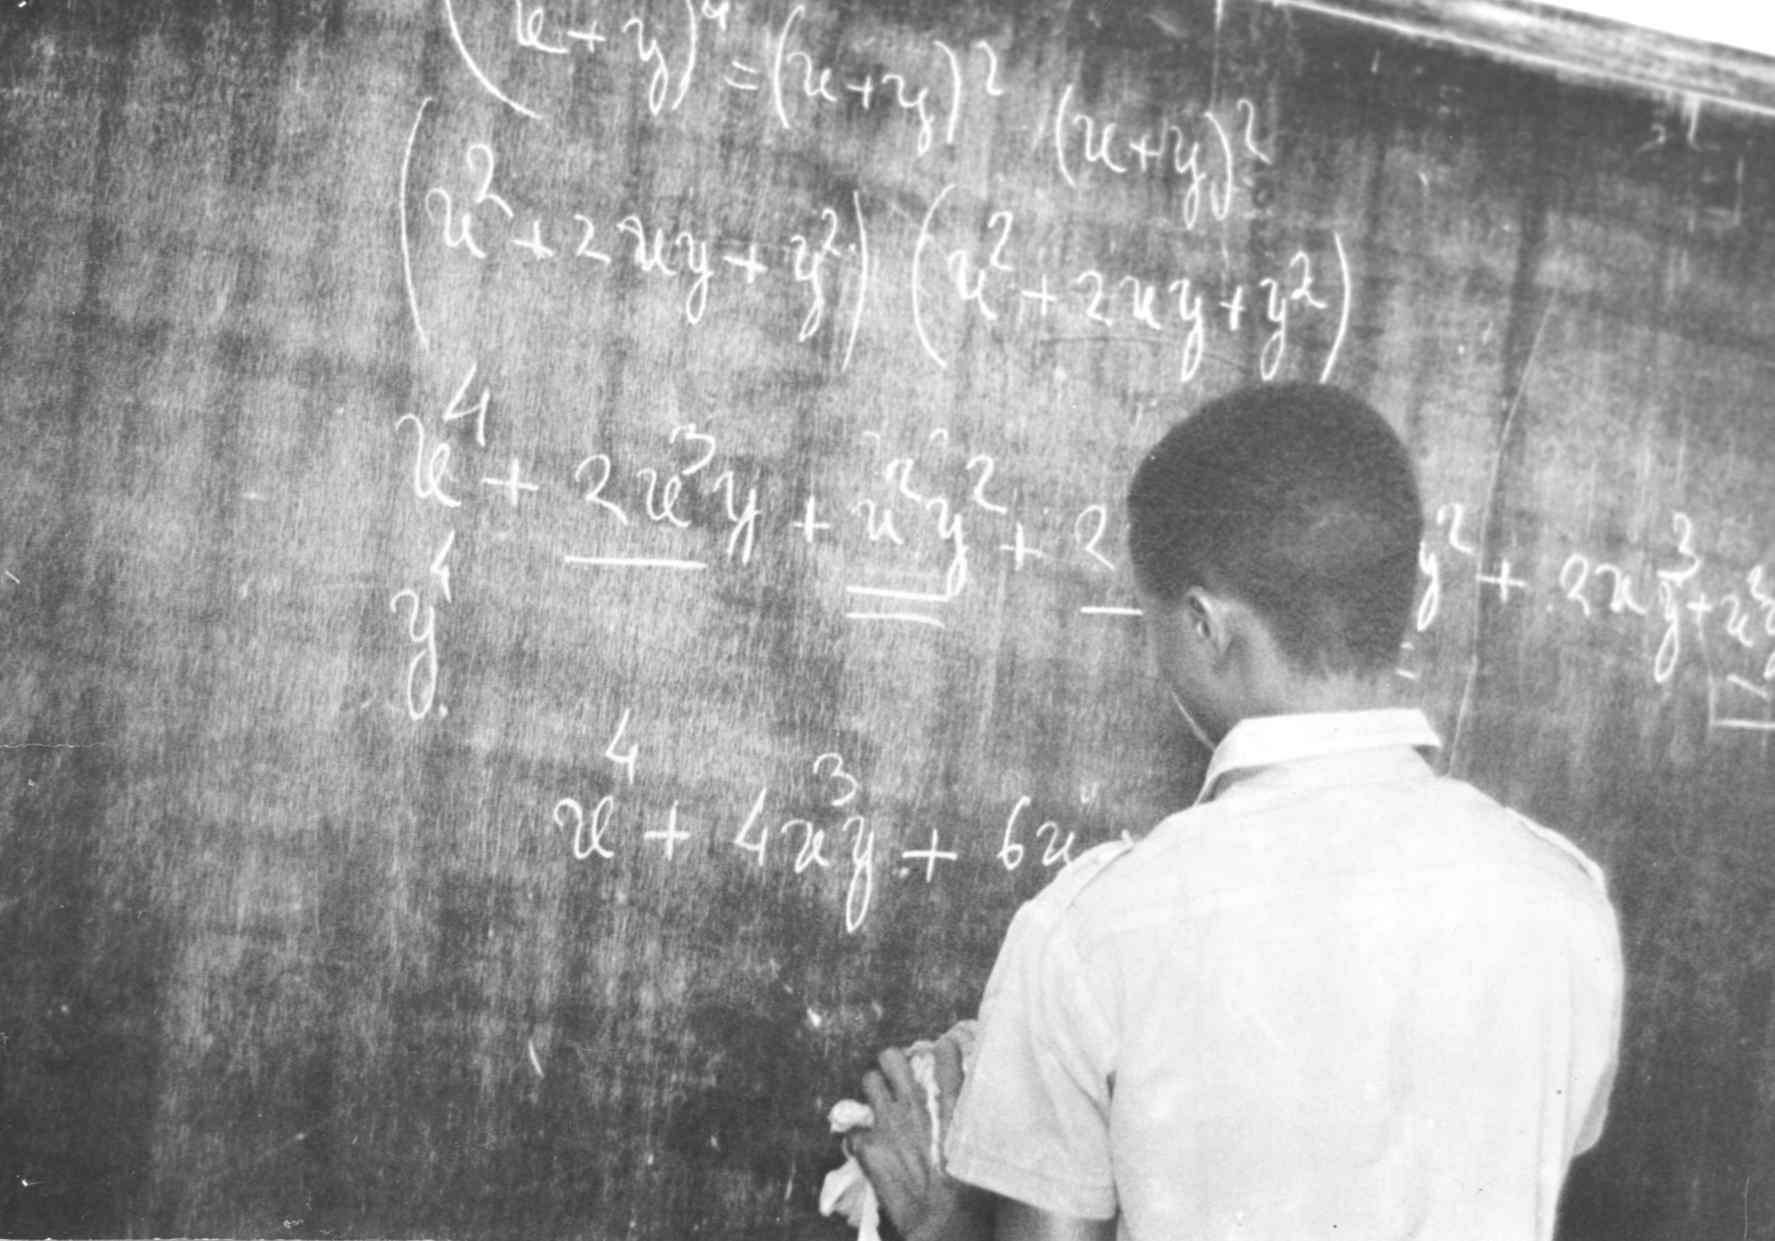 (x+y)⁴ = (x+y)² (x+y)²
(x² + 2xy + y²) (x² + 2xy + y²)
x⁴ + 2x³y + x²y² + 2 y² + 2xy³ + x²y
y⁴.
x⁴ + 4x³y + 6x